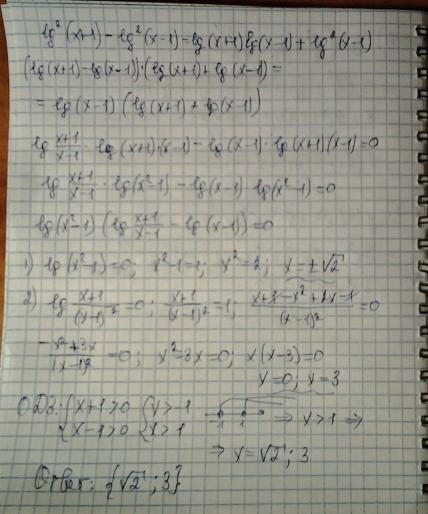 lg²(x+1) - lg²(x-1) = lg(x+1)lg(x-1) + lg²(x-1)
(lg(x+1) - lg(x-1))·(lg(x+1) + lg(x-1)) =
= lg(x-1)(lg(x+1) + lg(x-1))
lg (x+1)/(x-1) · lg(x+1)·(x-1) - lg(x-1)·lg(x+1)(x-1)=0
lg (x+1)/(x-1) · lg(x²-1) - lg(x-1) lg(x²-1)=0
lg(x²-1)(lg (x+1)/(x-1) - lg(x-1))=0
1) lg(x²-1)=0; x²-1=1; x²=2; x=±√2
2) lg (x+1)/(x-1)² =0; (x+1)/(x-1)² =1; (x+1-x²+2x-1)/(x-1)² =0
(-x²+3x)/(x-1)² =0; x²-3x=0; x(x-3)=0
x=0; x=3
ОДЗ: {x+1>0 {x>-1 -1 1 ⇒ x>1 ⇒
{x-1>0 {x>1
⇒ x=√2; 3
Ответ: {√2; 3}